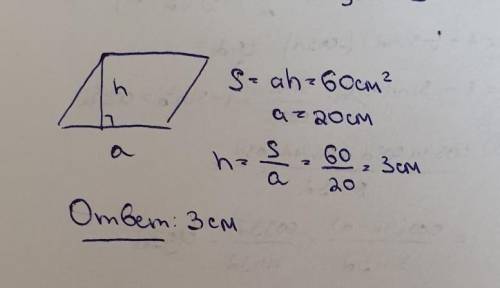 h
a
S = ah = 60см²
a = 20см
h = S/a = 60/20 = 3см
Ответ: 3см